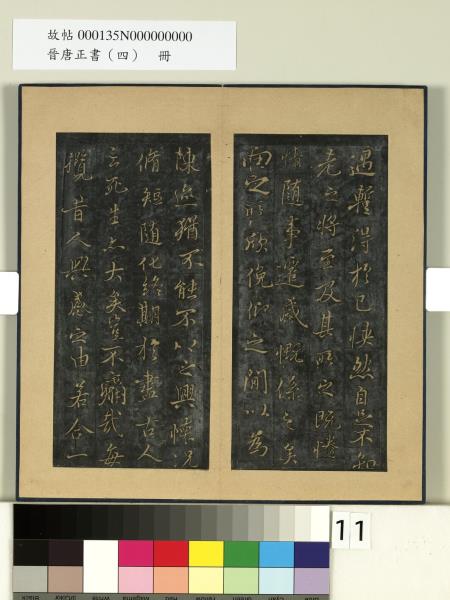 故帖 000135N000000000
晉唐正書（四） 冊
遇蹔得於己快然自足不知
老之將至及其所之既惓
情隨事遷感慨係之矣
向之所欣俛仰之閒以為
陳迹猶不能不以之興懷況
脩短隨化終期於盡古人
云死生亦大矣豈不痛哉每
攬昔人興感之由若合一
11